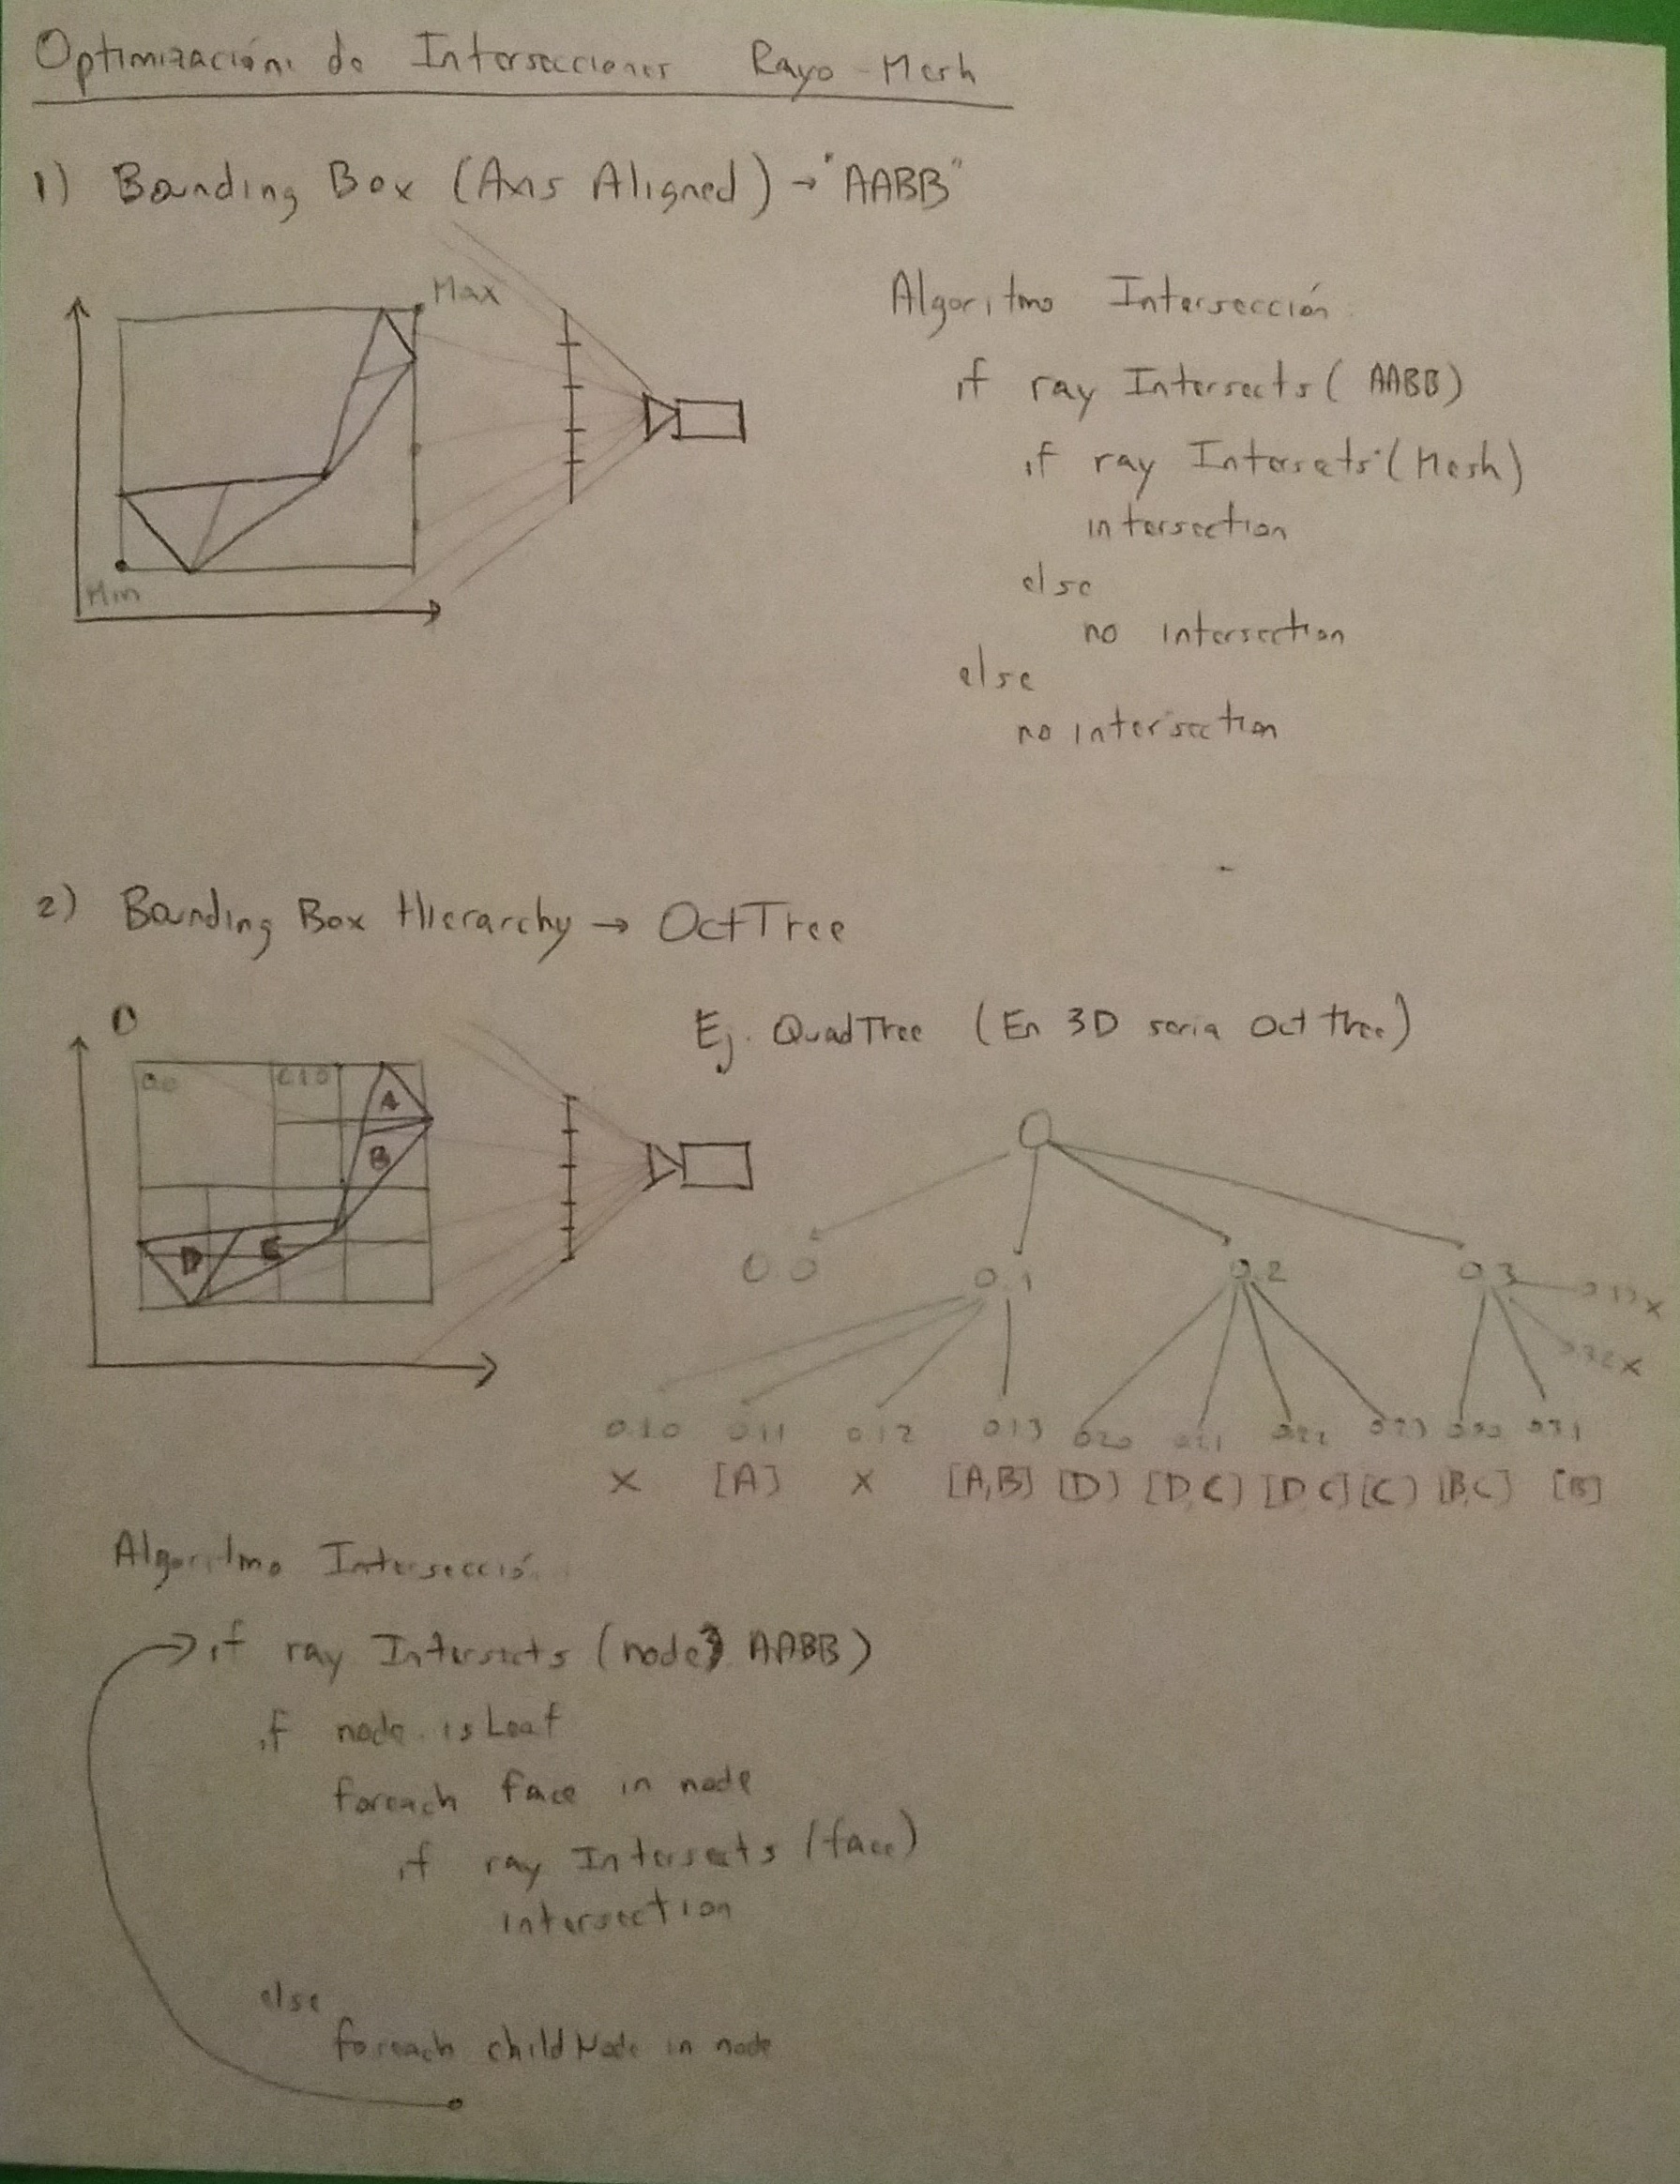 Optimización de Intersecciones Rayo-Mesh
1) Bounding Box (Axis Aligned) → "AABB"
Max
Min
Algoritmo Intersección:
if ray Intersects (AABB)
if ray Intersets (Mesh)
intersection
else
no intersection
else
no intersection
2) Bounding Box Hierarchy → OctTree
Ej. QuadTree (En 3D seria Oct tree)
0
0.0
A
B
D
C
0.0 0.1 0.2 0.3
0.1.0 0.1.1 0.1.2 0.1.3
X [A] X [A,B] [D] [D,C] [D C] [C] [B,C] [B]
X
X
Algoritmo Intersecció
if ray Intersects (node. AABB)
if node.isLeaf
foreach face in node
if ray Intersects (face)
intersection
else
foreach childNode in node